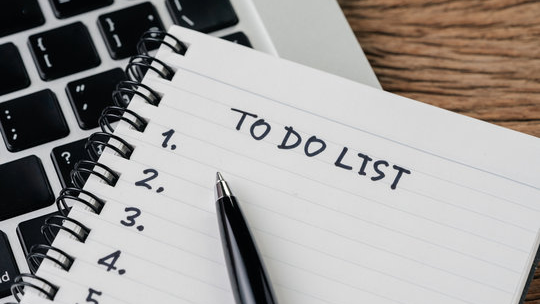 TO DO LIST
1.
2.
3.
4.
5
?